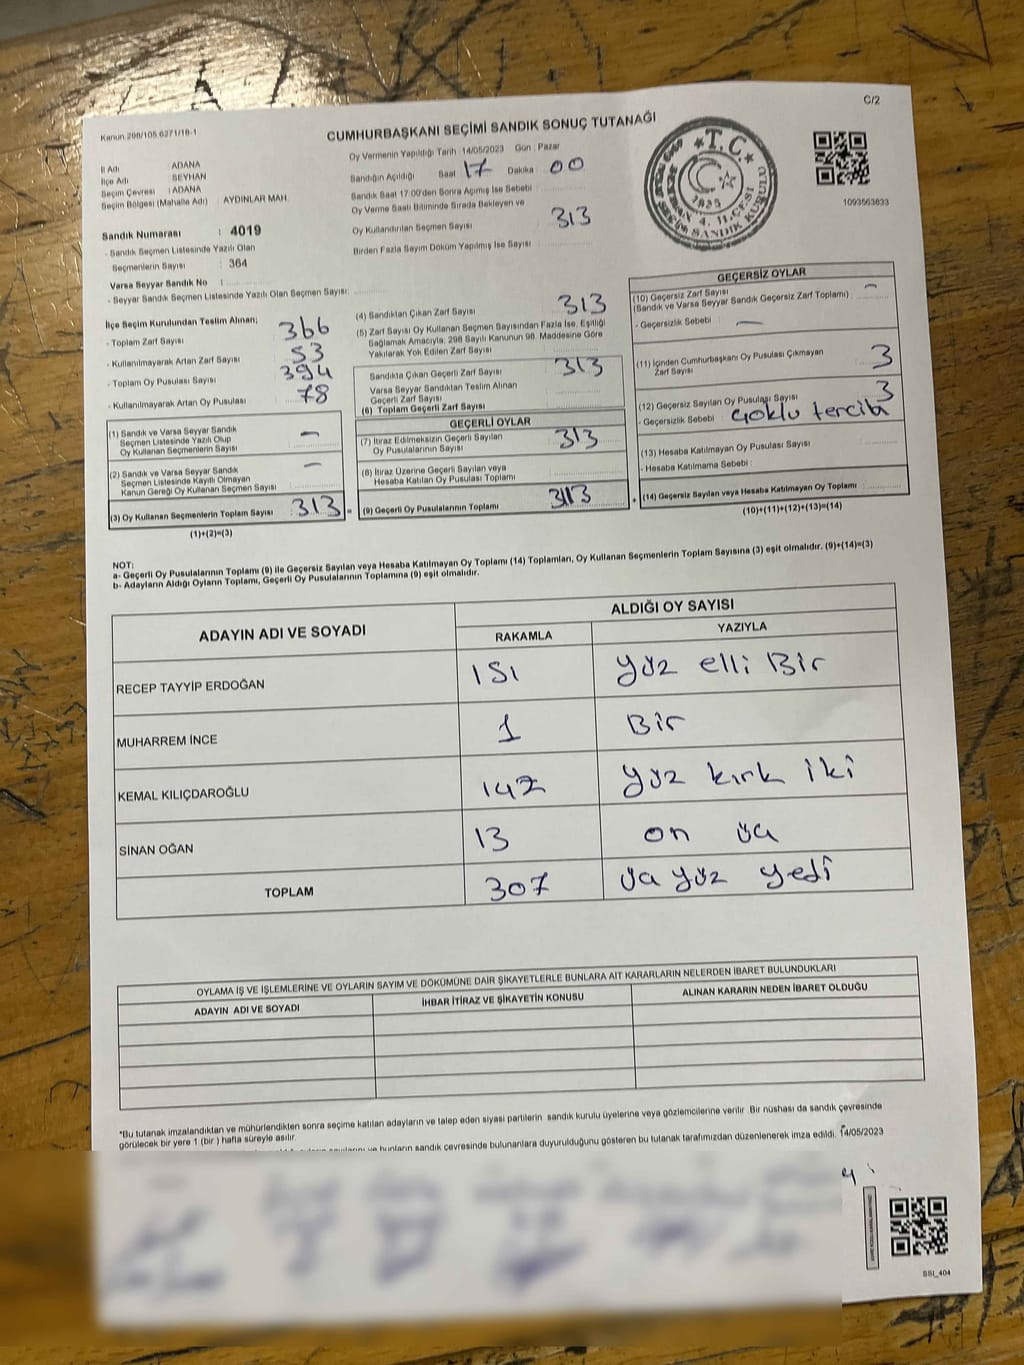 C/2
Kanun 298/105 6271/18-1
CUMHURBAŞKANI SEÇİMİ SANDIK SONUÇ TUTANAĞI
İl Adı : ADANA
İlçe Adı : SEYHAN
Seçim Çevresi : ADANA
Seçim Bölgesi (Mahalle Adı) : AYDINLAR MAH.
Sandık Numarası : 4019
- Sandık Seçmen Listesinde Yazılı Olan
Seçmenlerin Sayısı : 364
Varsa Seyyar Sandık No :
- Seyyar Sandık Seçmen Listesinde Yazılı Olan Seçmen Sayısı:
Oy Vermenin Yapıldığı Tarih 14/05/2023 Gün : Pazar
Sandığın Açıldığı Saat 17 Dakika 00
Sandık Saat 17.00'den Sonra Açılmış İse Sebebi :
Oy Verme Saati Bitiminde Sırada Bekleyen ve
Oy Kullandırılan Seçmen Sayısı 313
Birden Fazla Sayım Döküm Yapılmış İse Sayısı :
T.C.
1093563833
İlçe Seçim Kurulundan Teslim Alınan;
- Toplam Zarf Sayısı 366
- Kullanılmayarak Artan Zarf Sayısı 53
- Toplam Oy Pusulası Sayısı 394
- Kullanılmayarak Artan Oy Pusulası 78
(1) Sandık ve Varsa Seyyar Sandık
Seçmen Listesinde Yazılı Olup
Oy Kullanan Seçmenlerin Sayısı –
(2) Sandık ve Varsa Seyyar Sandık
Seçmen Listesinde Kayıtlı Olmayan
Kanun Gereği Oy Kullanan Seçmen Sayısı –
(3) Oy Kullanan Seçmenlerin Toplam Sayısı 313
(1)+(2)=(3)
(4) Sandıktan Çıkan Zarf Sayısı 313
(5) Zarf Sayısı Oy Kullanan Seçmen Sayısından Fazla İse, Eşitliği
Sağlamak Amacıyla, 298 Sayılı Kanunun 98. Maddesine Göre
Yakılarak Yok Edilen Zarf Sayısı
Sandıkta Çıkan Geçerli Zarf Sayısı 313
Varsa Seyyar Sandıktan Teslim Alınan
Geçerli Zarf Sayısı
(6) Toplam Geçerli Zarf Sayısı
GEÇERLİ OYLAR
(7) İtiraz Edilmeksizin Geçerli Sayılan
Oy Pusulasının Sayısı 313
(8) İtiraz Üzerine Geçerli Sayılan veya
Hesaba Katılan Oy Pusulası Toplamı
(9) Geçerli Oy Pusulalarının Toplamı 313
GEÇERSİZ OYLAR
(10) Geçersiz Zarf Sayısı
(Sandık ve Varsa Seyyar Sandık Geçersiz Zarf Toplamı) : –
- Geçersizlik Sebebi : –
(11) İçinden Cumhurbaşkanı Oy Pusulası Çıkmayan
Zarf Sayısı 3
(12) Geçersiz Sayılan Oy Pusulası Sayısı 3
- Geçersizlik Sebebi : çoklu tercih
(13) Hesaba Katılmayan Oy Pusulası Sayısı
- Hesaba Katılmama Sebebi :
(14) Geçersiz Sayılan veya Hesaba Katılmayan Oy Toplamı
(10)+(11)+(12)+(13)=(14)
NOT:
a- Geçerli Oy Pusulalarının Toplamı (9) ile Geçersiz Sayılan veya Hesaba Katılmayan Oy Toplamı (14) Toplamları, Oy Kullanan Seçmenlerin Toplam Sayısına (3) eşit olmalıdır. (9)+(14)=(3)
b- Adayların Aldığı Oyların Toplamı, Geçerli Oy Pusulalarının Toplamına (9) eşit olmalıdır.
ADAYIN ADI VE SOYADI
ALDIĞI OY SAYISI
RAKAMLA YAZIYLA
RECEP TAYYİP ERDOĞAN 151 yüz elli Bir
MUHARREM İNCE 1 Bir
KEMAL KILIÇDAROĞLU 142 yüz kırk iki
SİNAN OĞAN 13 on üç
TOPLAM 307 üç yüz yedi
OYLAMA İŞ VE İŞLEMLERİNE VE OYLARIN SAYIM VE DÖKÜMÜNE DAİR ŞİKAYETLERLE BUNLARA AİT KARARLARIN NELERDEN İBARET BULUNDUKLARI
ADAYIN ADI VE SOYADI İHBAR İTİRAZ VE ŞİKAYETİN KONUSU ALINAN KARARIN NEDEN İBARET OLDUĞU
*Bu tutanak imzalandıktan ve mühürlendikten sonra seçime katılan adayların ve talep eden siyasi partilerin sandık kurulu üyelerine veya gözlemcilerine verilir. Bir nüshası da sandık çevresinde
görülecek bir yere 1 (bir) hafta süreyle asılır.
ve bunların sandık çevresinde bulunanlara duyurulduğunu gösteren bu tutanak tarafımızdan düzenlenerek imza edildi. 14/05/2023
SSI_404